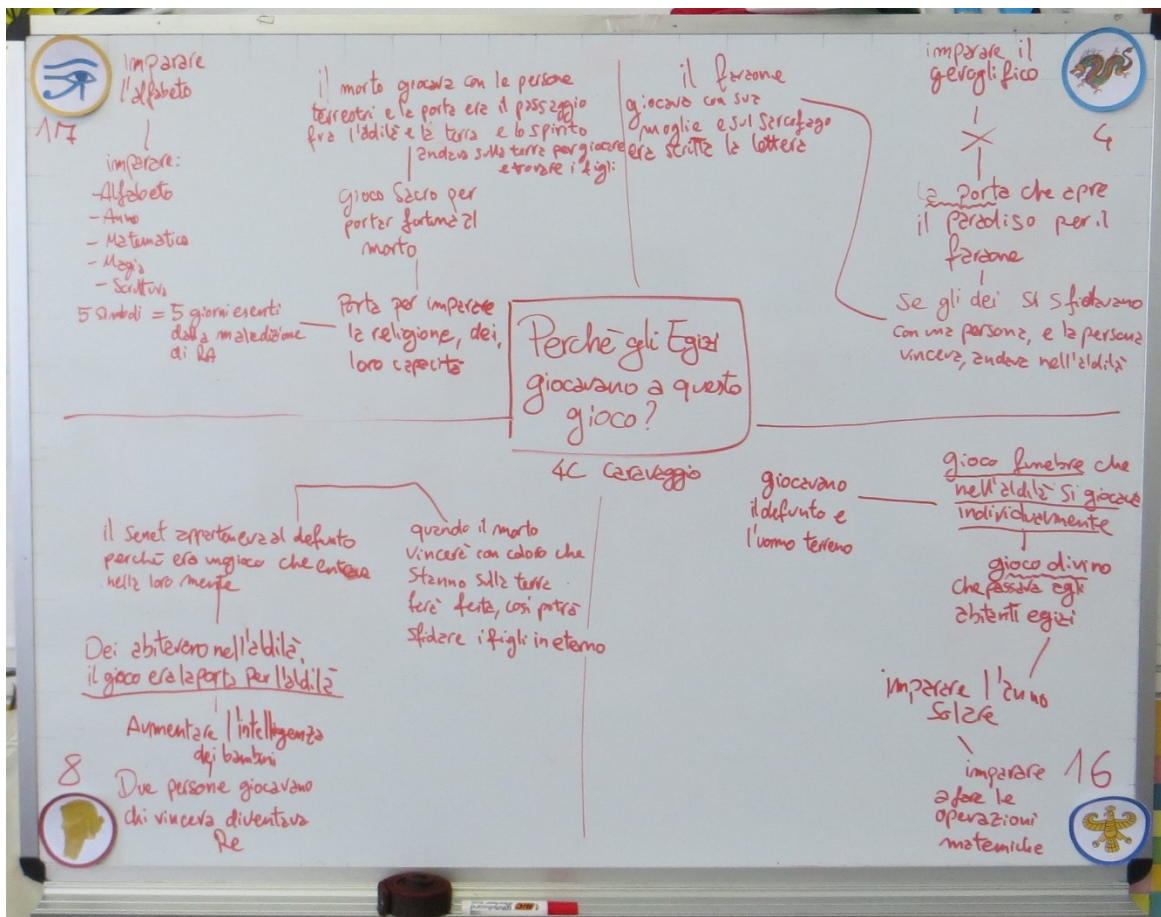 Imparare
l'alfabeto
17
imparare:
-Alfabeto
- Anno
- Matematica
- Magia
- Scrittura
5 simboli = 5 giorni esenti
dalla maledizione
di RA
il morto giocava con le persone
terrestri e la porta era il passaggio
fra l'aldilà e la terra e lo spirito
andava sulla terra per giocare
e trovare i figli
gioco sacro per
portar fortuna al
morto
Porta per imparare
la religione, dei,
loro capacità
il faraone
giocava con sua
moglie e sul sarcofago
era scritta la lettera
imparare il
geroglifico
4
la porta che apre
il paradiso per il
faraone
Se gli dei si sfidavano
con una persona, e la persona
vinceva, andava nell'aldilà
Perchè gli Egizi
giocavano a questo
gioco?
4C Caravaggio
il Senet apparteneva al defunto
perchè era un gioco che entrava
nella loro mente
Dei abitavano nell'aldilà,
il gioco era la porta per l'aldilà
Aumentare l'intelligenza
dei bambini
Due persone giocavano
chi vinceva diventava
Re
8
quando il morto
vincerà con coloro che
stanno sulla terra
farà festa, così potrà
sfidare i figli in eterno
giocavano
il defunto e
l'uomo terreno
gioco funebre che
nell'aldilà si giocava
individualmente
gioco divino
che passava agli
abitanti egizi
imparare l'anno
solare
imparare
a fare le
operazioni
matemiche
16
BIC